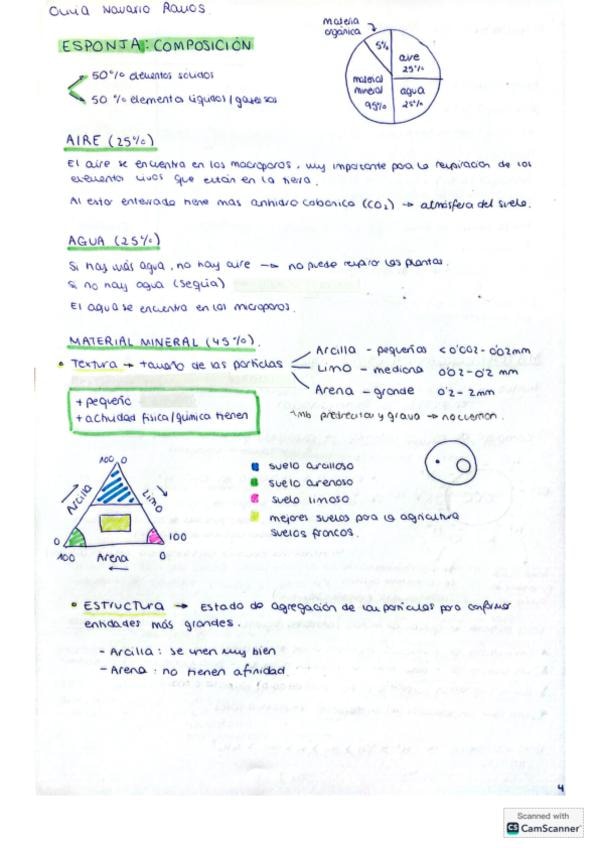 Olivia Navarro Ramos
ESPONJA: COMPOSICIÓN
50% elementos solidos
50 % elementos liquidos / gaseosos
materia
organica
5%
aire
25%
material
mineral
95%
agua
25%
AIRE (25%)
El aire se encuentra en los macroporos, muy importante para la respiracion de los
elementos vivos que estan en la tierra.
Al estar enterrado tiene mas anhidro cabonico (CO₂) → atmosfera del suelo.
AGUA (25%)
Si hay más agua, no hay aire → no puede respirar las plantas.
Si no hay agua (sequia)
El agua se encuentra en los microporos.
MATERIAL MINERAL (45%).
• Textura → tamaño de las particlas
Arcilla - pequeñas < 0'002 - 0'02mm
Limo - mediana 0'02 - 0'2 mm
Arena - grande 0'2 - 2mm
+ pequeño
+ actividad fisica/quimica tienen
piedrecitas y grava →
100 0
Arcilla
Limo
0
100
100
Arena
0
suelo arcilloso
suelo arenoso
suelo limoso
mejores suelos para la agricultura
suelos francos.
• ESTRUCTURA → Estado de agregación de las particulas para conformar
entidades más grandes.
- Arcilla: se unen muy bien
- Arena: no tienen afinidad.
4
Scanned with
CS CamScanner